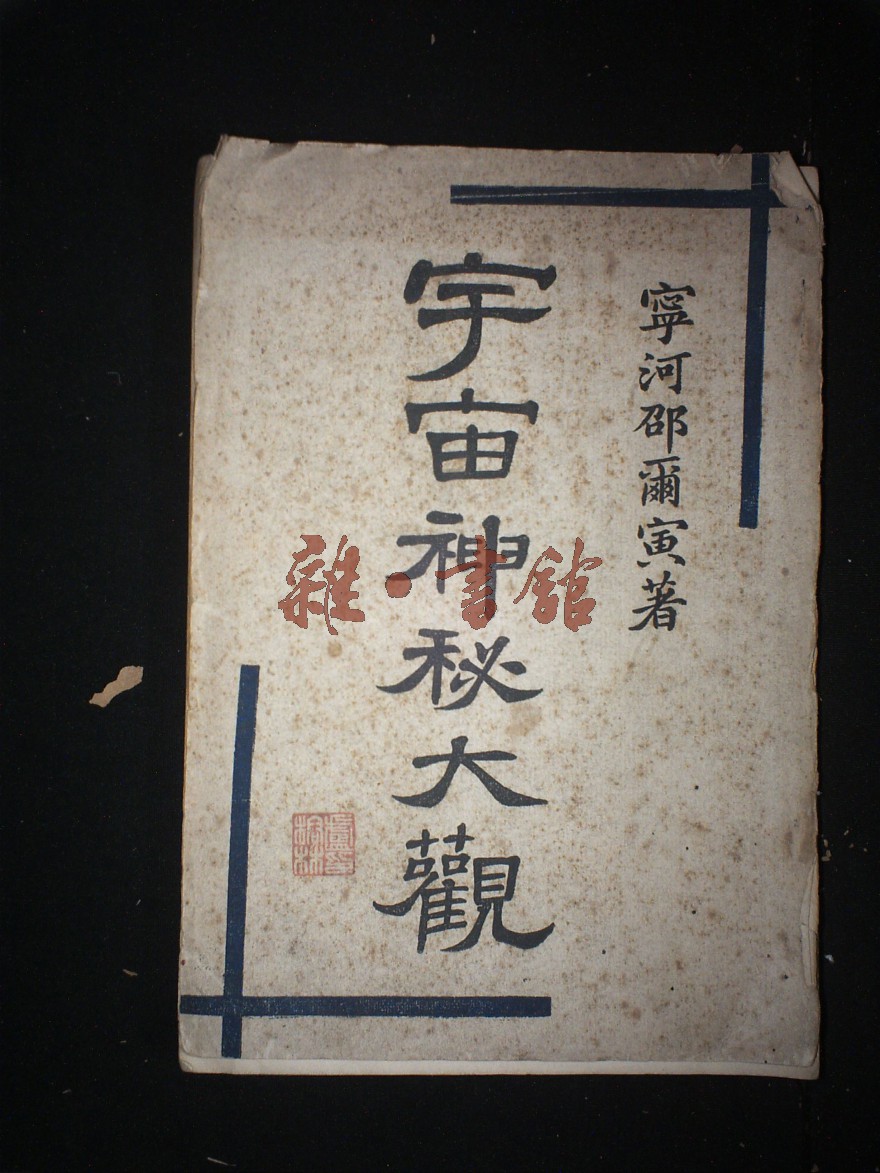 寧河邵爾寅著
宇宙神秘大觀
雜·書館